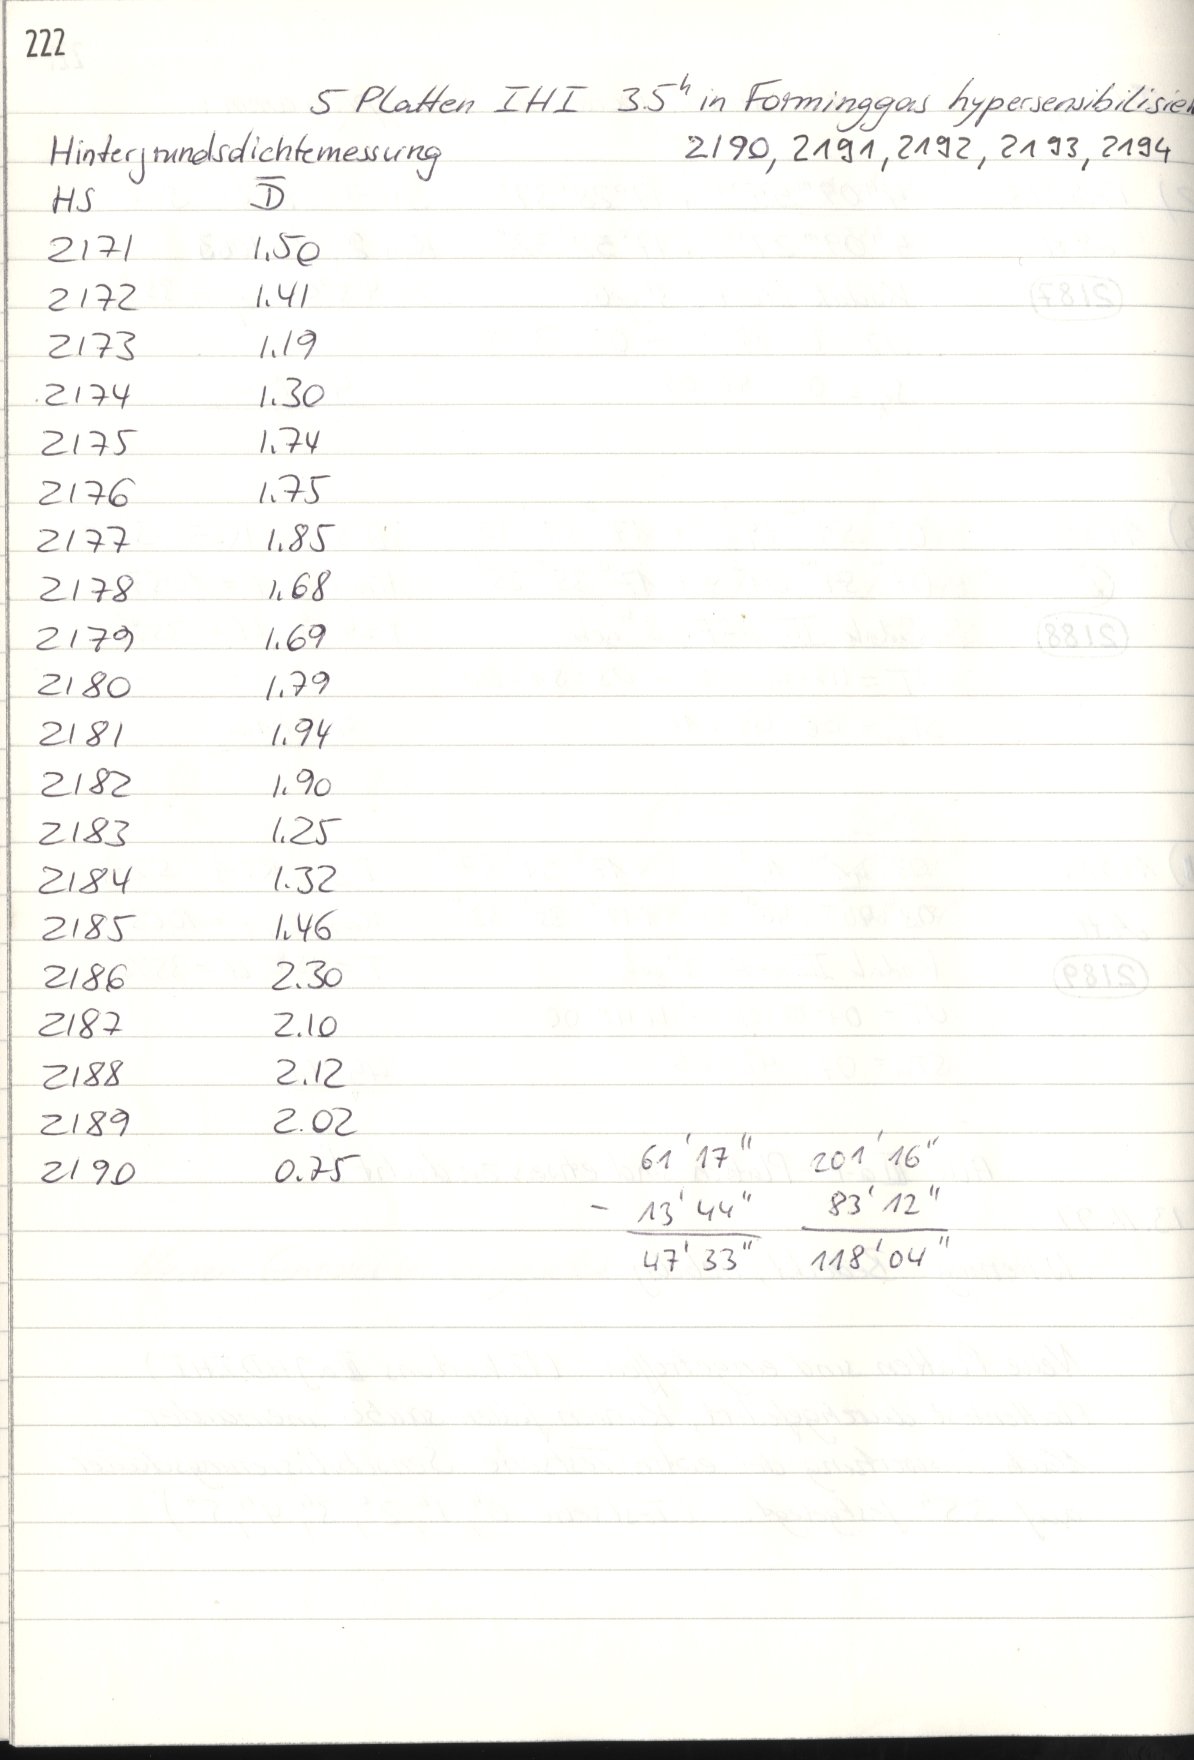 222
5 Platten IHI 35h in Forminggas hypersensibilisier
Hintergrundsdichtemessung 2190, 2191, 2192, 2193, 2194
HS D̅
2171 1.50
2172 1.41
2173 1.19
2174 1.30
2175 1.74
2176 1.75
2177 1.85
2178 1.68
2179 1.69
2180 1.79
2181 1.94
2182 1.90
2183 1.25
2184 1.32
2185 1.46
2186 2.30
2187 2.10
2188 2.12
2189 2.02
2190 0.75
61' 17" 201' 16"
- 13' 44" 83' 12"
47' 33" 118' 04"